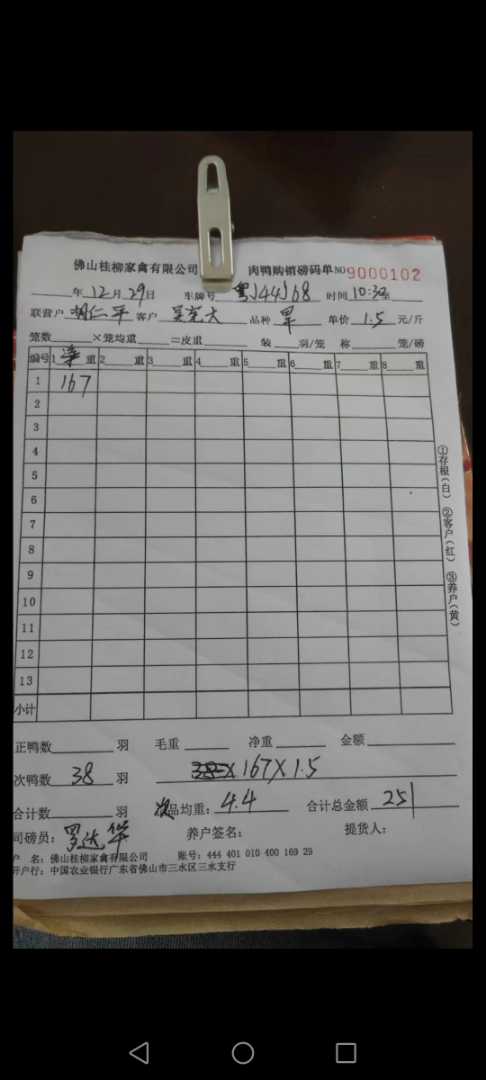 佛山桂柳家禽有限公司 肉鸭购销磅码单 NO 9000102
年12月29日 车牌号 粤J44J68 时间 10:32
联营户 胡仁平 客户 品种 单价 1.5 元/斤
笼数 ×笼均重 =皮重 装 羽/笼 称 笼/磅
编号 1 重 2 重 3 重 4 重 5 重 6 重 7 重 8 重
1 167
2
3
4
5
6
7
8
9
10
11
12
13
小计
①存根(白) ②客户(红) ③养户(黄)
正鸭数 羽 毛重 净重 金额
次鸭数 38 羽 X167X1.5
合计数 羽 次品均重: 4.4 合计总金额 251
司磅员: 养户签名: 提货人:
户 名: 佛山桂柳家禽有限公司 账号: 444 401 010 400 169 29
开户行: 中国农业银行广东省佛山市三水区三水支行